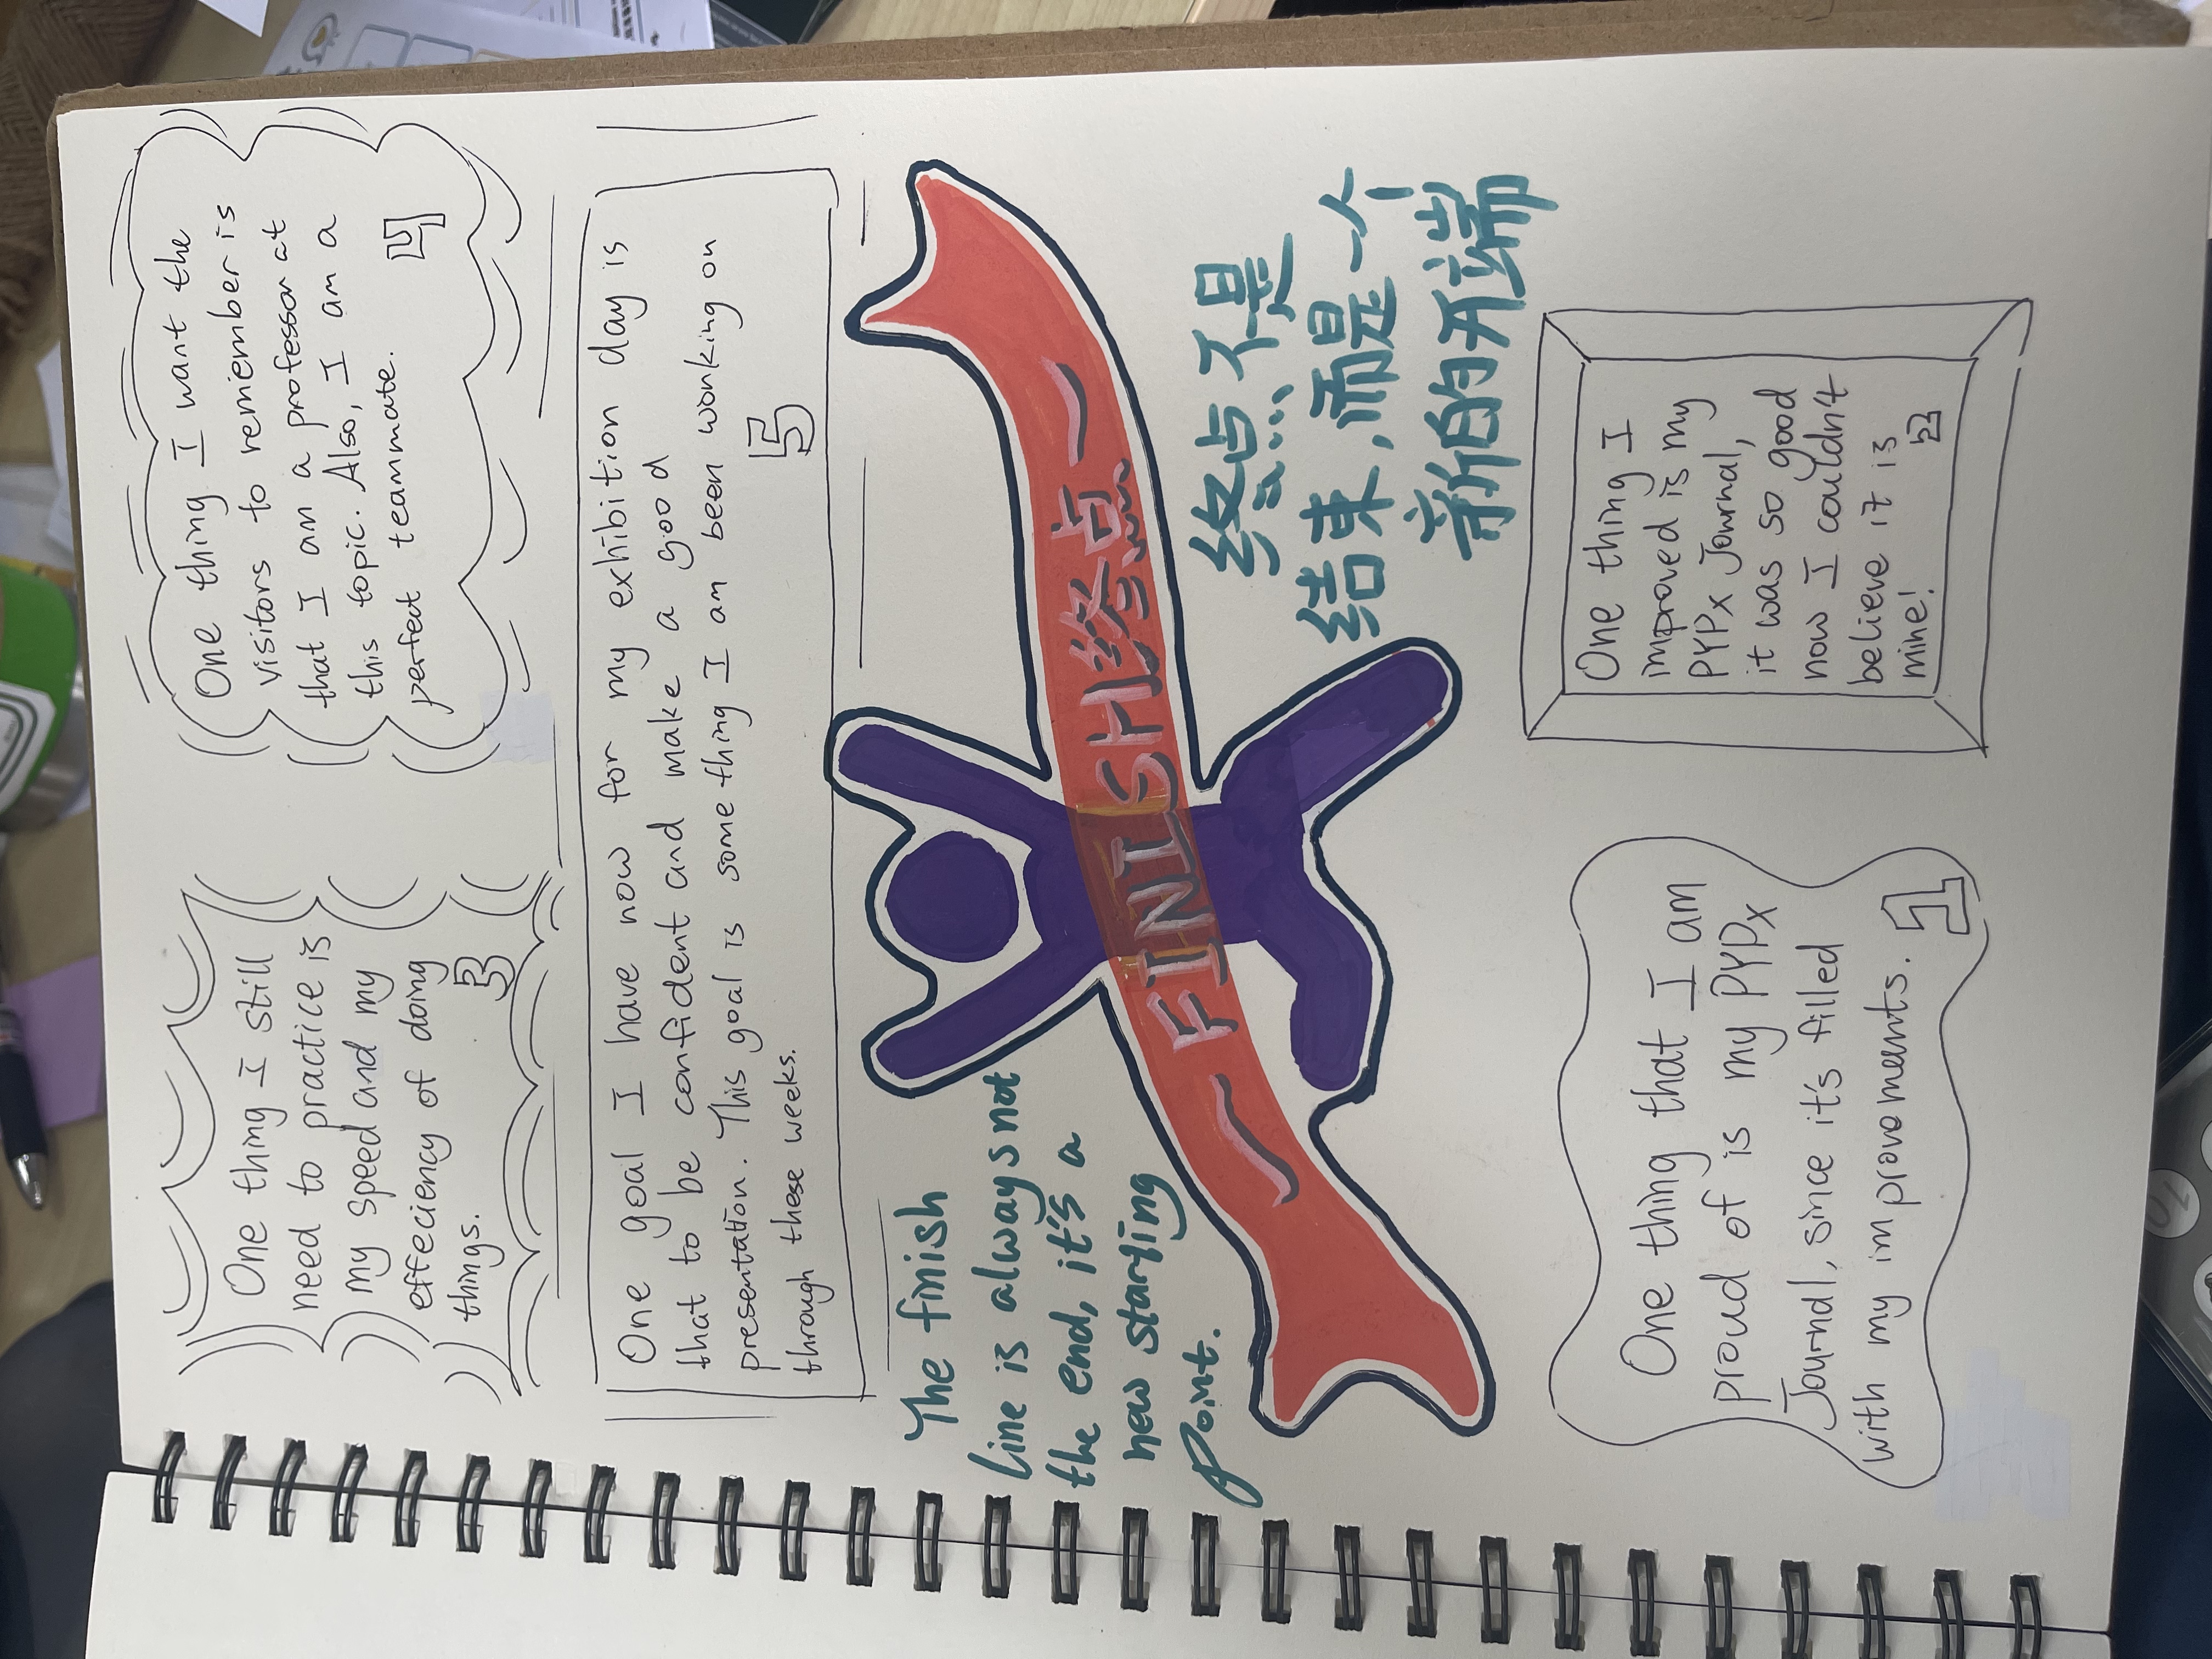 One thing I still
need to practice is
my speed and my
effeciency of doing
things.
3
One thing I want the
visitors to remiember is
that I am a professor at
this topic. Also, I am a
perfect teammate.
4
One goal I have now for my exhibition day is
that to be confident and make a good
presentation. This goal is some thing I am been working on
through these weeks.
5
The finish
line is always not
the end, it's a
new starting
point.
~ FINISH终点 ~
终点不是
结束,而是一个
新的开端
One thing that I am
proud of is my PYPx
Journal, since it's filled
with my improvements.
1
One thing I
improved is my
PYPx Journal,
it was so good
now I couldn't
believe it is
mine!
2